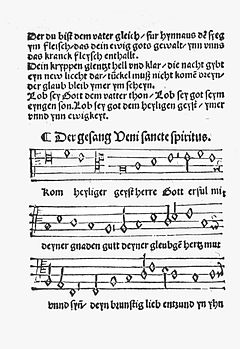 Der du bist dem vater gleich / für hynnaus dẽ syeg
ym fleisch / das dein ewig gots gewalt / ynn vnns
das kranck fleysch enthallt.
Dein kryppen glentzt hell vnd klar / die nacht gybt
eyn new liecht dar / tückel muß nicht komẽ dreyn /
der glaub bleyb ymer ym scheyn.
Lob sey Gott dem vatter thon / Lob sey got seym
eyngen son. Lob sey got dem heyligen geyst / ymer
vnnd ynn ewigkeyt.
¶ Der gesang Veni sancte spiritus.
Kom heyliger geyst herre Gott erful mit
deyner gnaden gutt deyner gleubgẽ hertz mut
vnnd syñ / deyn brunstig lieb entzund yn yhn